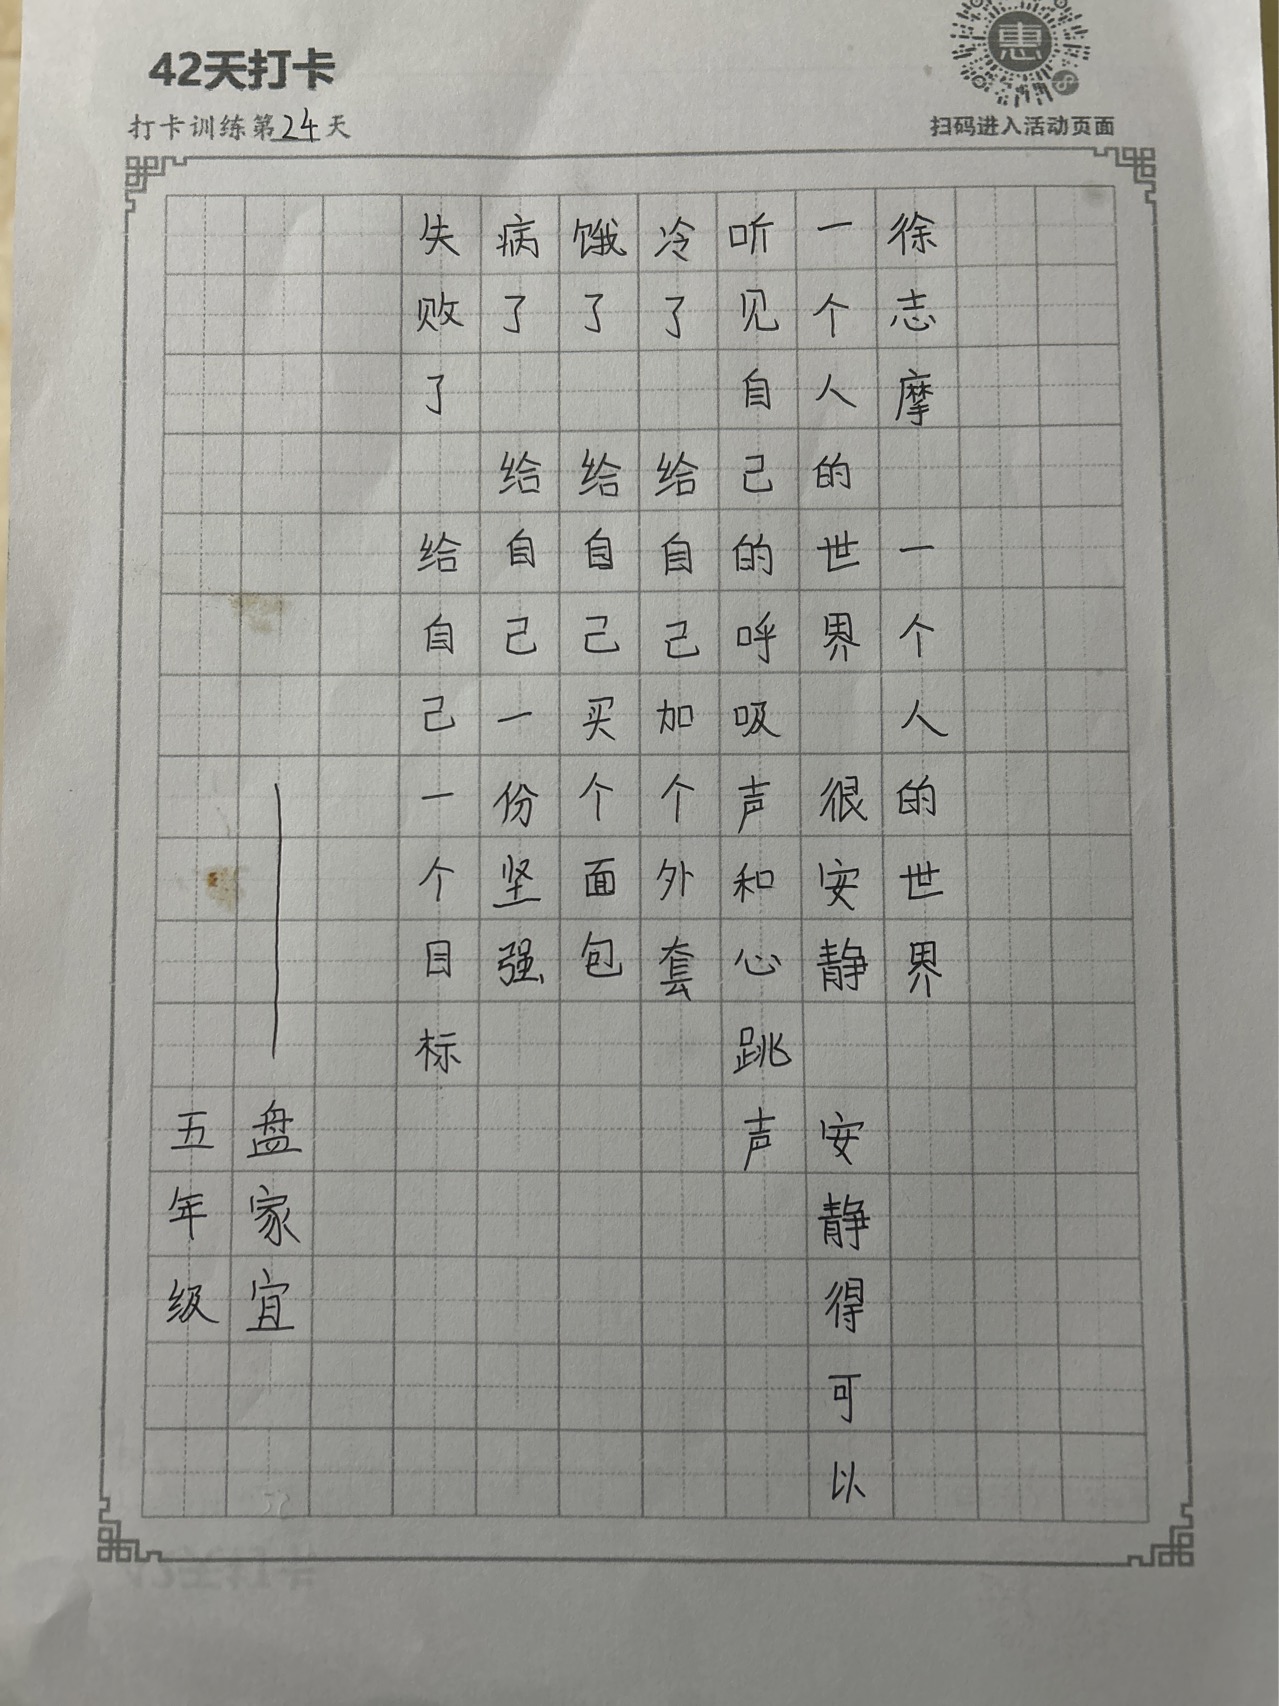 42天打卡
打卡训练第24天
惠
扫码进入活动页面
徐志摩 一个人的世界
一个人的世界 很安静 安静得可以
听见自己的呼吸声和心跳声
冷了 给自己加个外套
饿了 给自己买个面包
病了 给自己一份坚强
失败了 给自己一个目标
——盘家宜
五年级